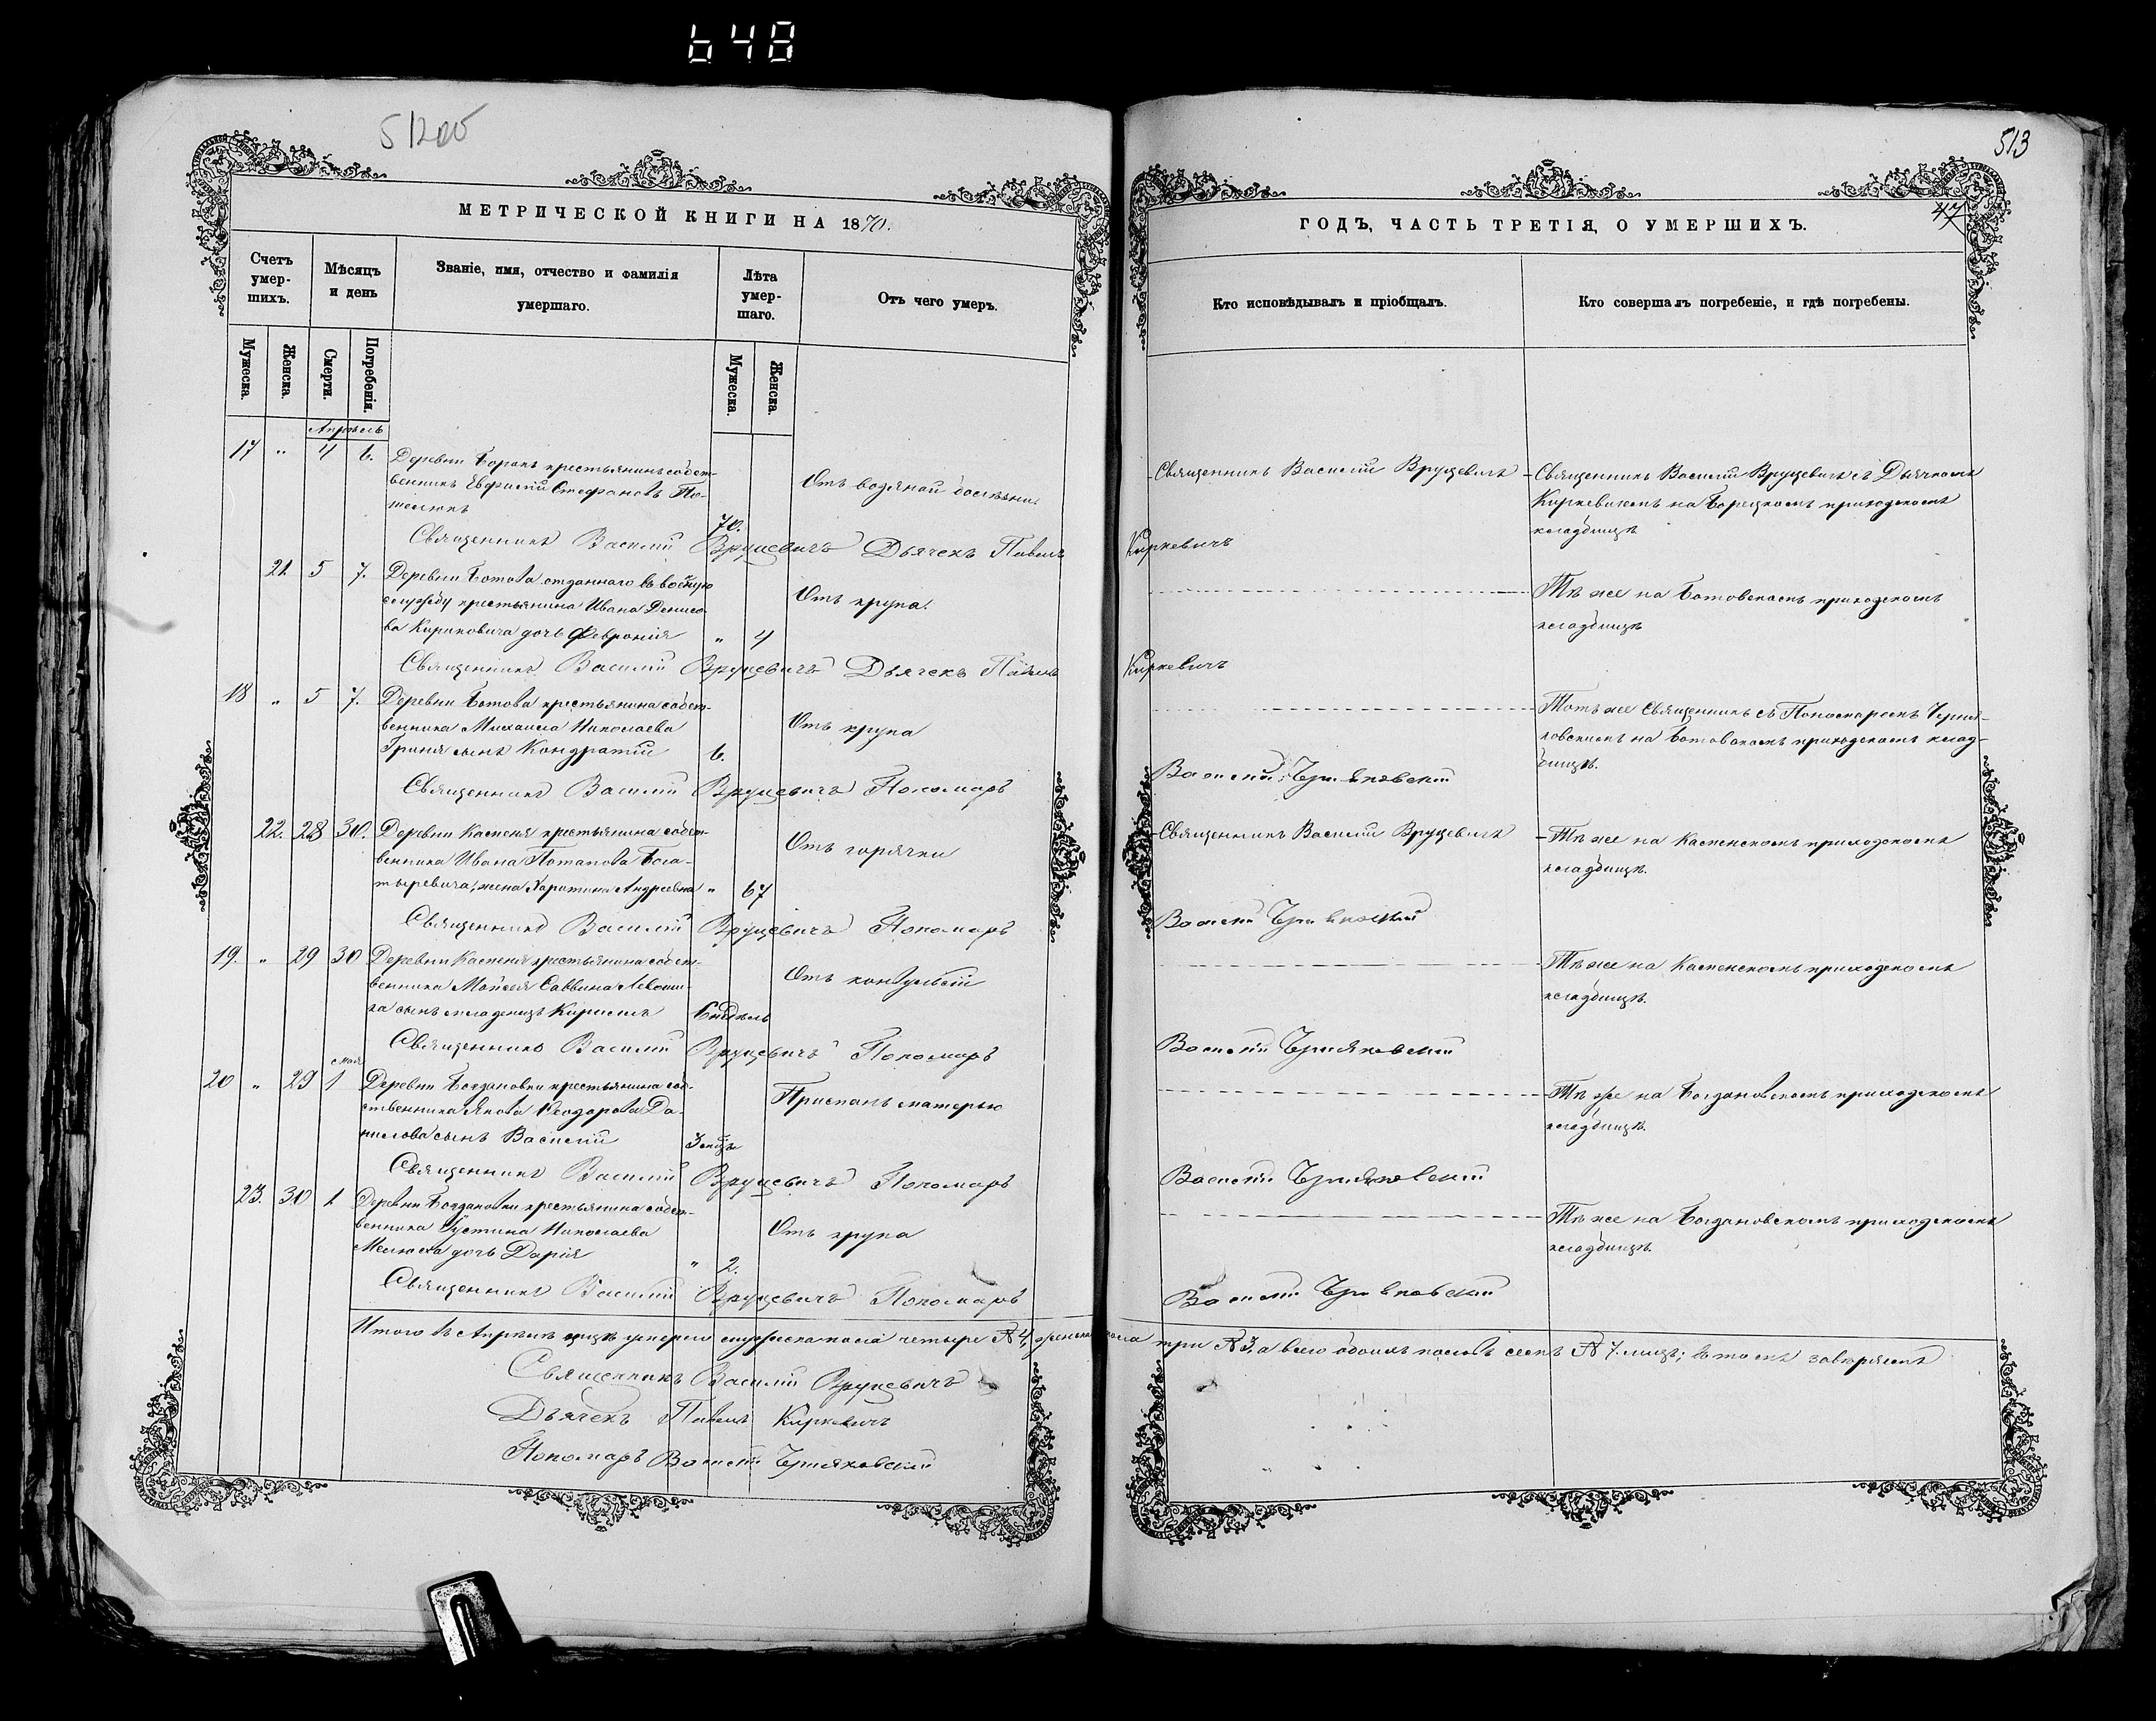 648
512об
513
47
МЕТРИЧЕСКОЙ КНИГИ НА 1870.
ГОДЪ, ЧАСТЬ ТРЕТІЯ, О УМЕРШИХЪ.
Счетъ умер-шихъ.
Мѣсяцъ и день
Званіе, имя, отчество и фамилія умершаго.
Лѣта умер-шаго.
Отъ чего умеръ.
Кто исповѣдывалъ и пріобщалъ.
Кто совершалъ погребеніе, и гдѣ погребены.
Мужеска.
Женска.
Смерти.
Погребенія.
Мужеска.
Женска.
Апрѣль
17 " 4 6. Деревни крестьянинъ собст-
венникъ Евфимій Стефановъ По-
70.
Отъ водяной болѣзни.
Священникъ Василій Вруцевичъ
Священникъ Василій Вруцевичъ съ Дьячкомъ
Киркевичемъ на Борецкомъ приходскомъ
кладбищѣ
Священникъ Василій Вруцевичъ Дьячекъ Павелъ Киркевичъ
21. 5 7. Деревни Ботова отданнаго въ военную
службу крестьянина Ивана Денисо-
ва Кириковича дочь Февронія " 4
Отъ крупа.
Тѣ же на Ботовскомъ приходскомъ
кладбищѣ
Священникъ Василій Вруцевичъ Дьячекъ Павелъ Киркевичъ
18 " 5 7. Деревни Ботова крестьянина собст-
венника Михаила Николаева
Гриня сынъ Кондратій 6.
Отъ крупа
Тотъ же Священникъ съ Пономаремъ Черня-
ховскимъ на Ботовскомъ приходскомъ клад-
бищѣ.
Священникъ Василій Вруцевичъ Пономарь Василій Черняховскій
22. 28 30. Деревни Каменя крестьянина собст-
венника Ивана Потапова Бога-
тыревича, жена Харитина Андреевна " 67
Отъ горячки
Священникъ Василій Вруцевичъ
Тѣ же на Каменскомъ приходскомъ
кладбищѣ.
Священникъ Василій Вруцевичъ Пономарь Василій Черняховскій
19. " 29 30 Деревни Каменя крестьянина собст-
венника Мойсея Саввина
сынъ младенецъ Кириллъ 6 недѣль
Отъ конвульсіи
Тѣ же на Каменскомъ приходскомъ
кладбищѣ.
Священникъ Василій Вруцевичъ Пономарь Василій Черняховскій
Мая
20 " 29 1 Деревни Богдановки крестьянина соб-
ственника Якова Ѳеодорова Да-
нилова сынъ Василій 3 мѣсц.
Приспанъ матерью
Тѣ же на Богдановскомъ приходскомъ
кладбищѣ.
Священникъ Василій Вруцевичъ Пономарь Василій Черняховскій
23. 30 1 Деревни Богдановки крестьянина собст-
венника Іустина Николаева
дочь Дарія " 2.
Отъ крупа
Тѣ же на Богдановскомъ приходскомъ
кладбищѣ.
Священникъ Василій Вруцевичъ Пономарь Василій Черняховскій
Итого въ Апрѣлѣ мцѣ умерло мужеска пола четыре № 4, женска пола три № 3, а всего обоихъ половъ семь № 7. лицъ; въ томъ завѣряемъ
Священникъ Василій Вруцевичъ
Дьячекъ Павелъ Киркевичъ
Пономарь Василій Черняховскій